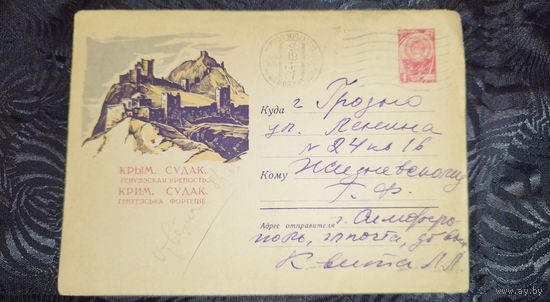 КРЫМ. СУДАК.
ГЕНУЭЗСКАЯ КРЕПОСТЬ.
КРИМ. СУДАК.
ГЕНУЕЗЬКА ФОРТЕЦЯ
Куда г Гродно
ул. Ленина
№ 24 кв 16
Кому Жизневскому
Г. Ф.
Адрес отправителя г. Симферо-
поль, гл почта, до вос
Квита Л Л.
www.ay.by